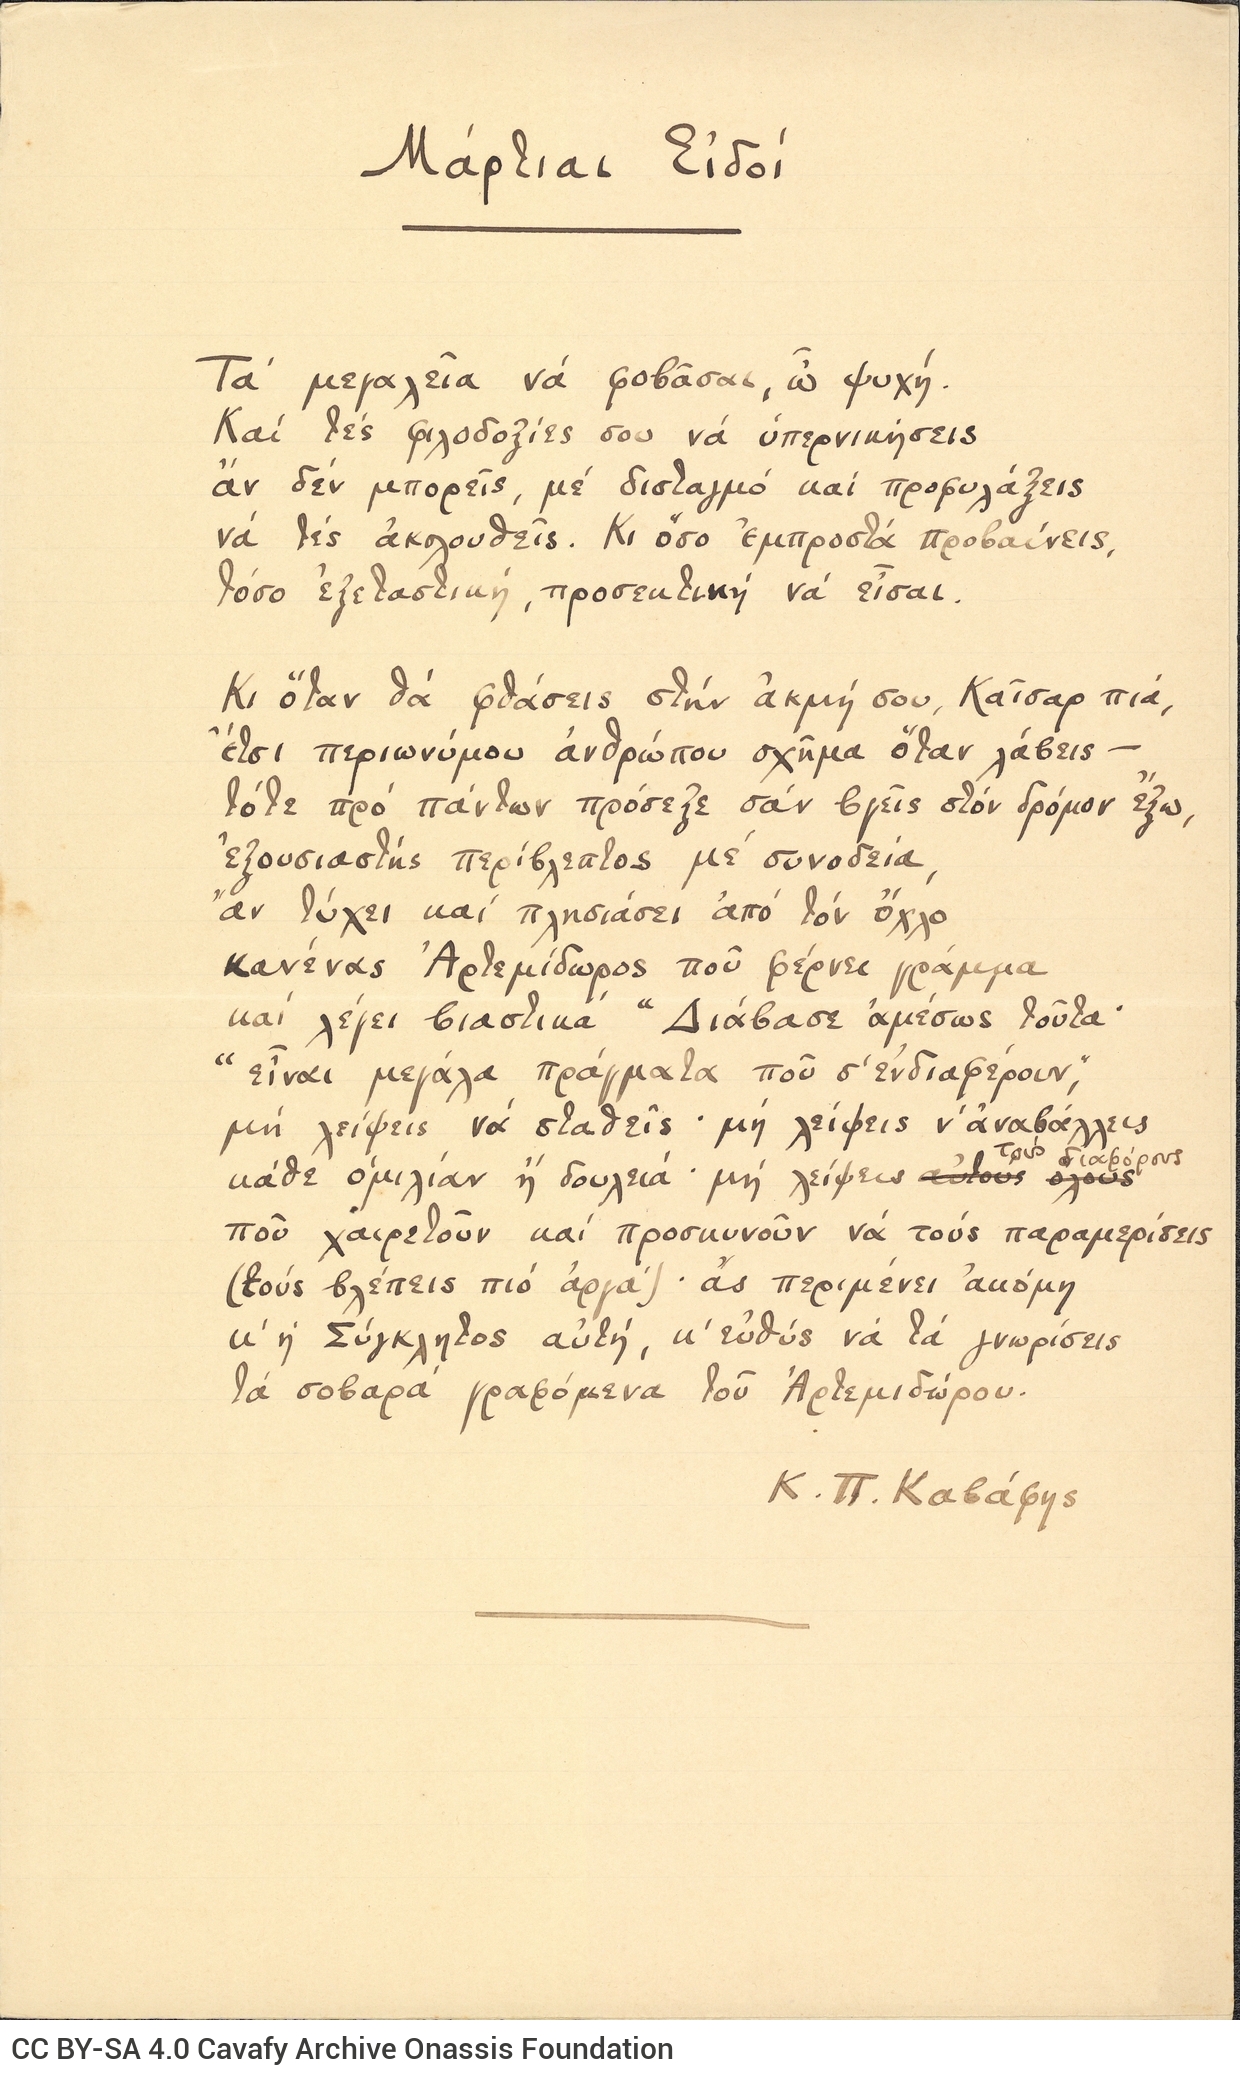 Μάρτιαι Εἰδοί
Τά μεγαλεῖα νά φοβᾶσαι, ὦ ψυχή.
Καί τές φιλοδοξίες σου νά ὑπερνικήσεις
ἄν δέν μπορεῖς, μέ δισταγμό καί προφυλάξεις
νά τές ἀκολουθεῖς. Κι ὅσο ἐμπροστά προβαίνεις,
τόσο ἐξεταστική, προσεκτική νά εἶσαι.
Κι ὅταν θά φθάσεις στήν ἀκμή σου, Καῖσαρ πιά,
ἔτσι περιωνύμου ἀνθρώπου σχῆμα ὅταν λάβεις —
τότε πρό πάντων πρόσεξε σάν βγεῖς στόν δρόμον ἔξω,
ἐξουσιαστής περίβλεπτος μέ συνοδεία,
ἄν τύχει καί πλησιάσει ἀπό τόν ὄχλο
κανένας Ἀρτεμίδωρος ποῦ φέρνει γράμμα
καί λέγει βιαστικά “ Διάβασε ἀμέσως τοῦτα·
“ εἶναι μεγάλα πράγματα ποῦ σ' ἐνδιαφέρουν,”
μή λείψεις νά σταθεῖς · μή λείψεις ν' ἀναβάλλεις
τρύς διαφόρους
κάθε ὁμιλίαν ἤ δουλειά · μή λείψεις αὐτούς ὅλους
ποῦ χαιρετοῦν καί προσκυνοῦν νά τούς παραμερίσεις
(τούς βλέπεις πιό ἀργά) · ἄς περιμένει ἀκόμη
κ' ἡ Σύγκλητος αὐτή, κ' εὐθύς νά τά γνωρίσεις
τά σοβαρά γραφόμενα τοῦ Ἀρτεμιδώρου.
Κ. Π. Καβάφης
CC BY-SA 4.0 Cavafy Archive Onassis Foundation